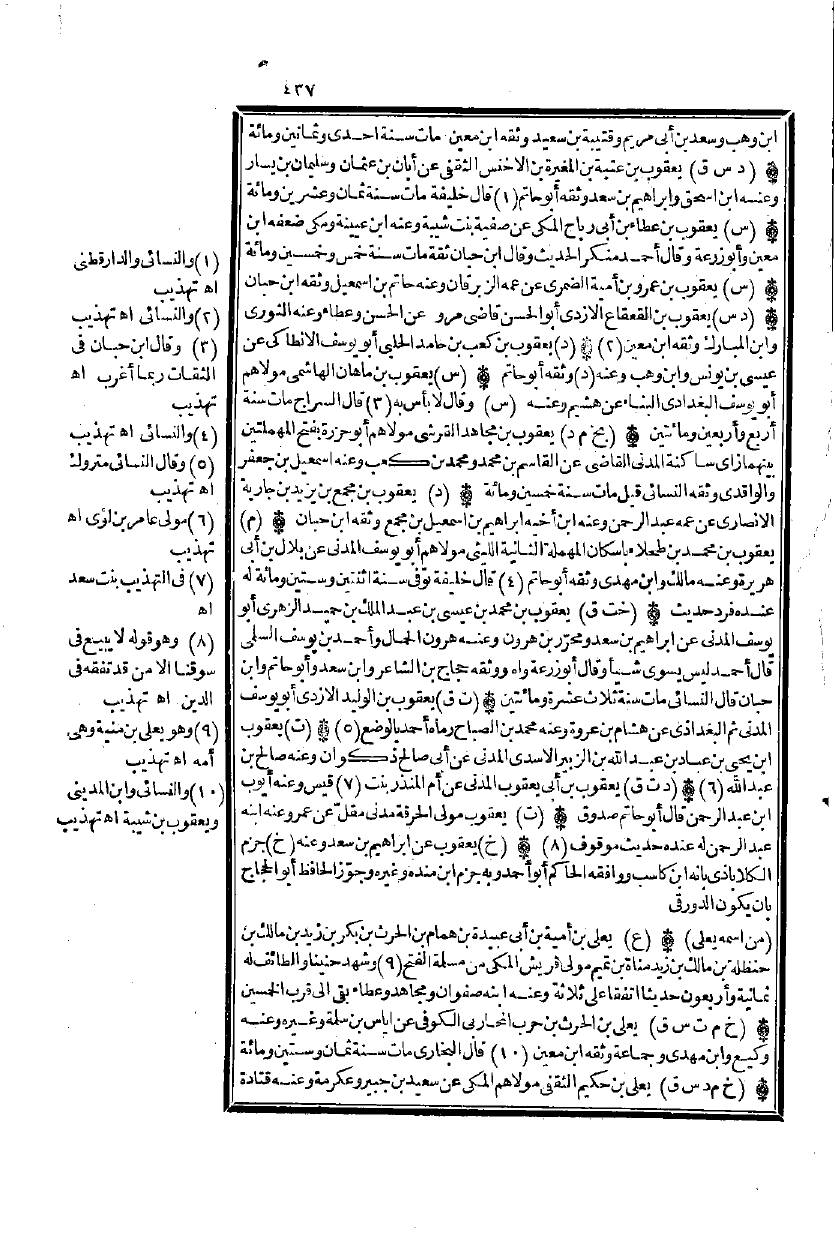 ٤٣٧
ابن وهب وسعد بن أبى مريم وقتيبة بن سعيد وثقه ابن معين مات سنة احدى وثمانين ومائة
(د س ق) يعقوب بن عتبة بن المغيرة بن الاخنس الثقفى عن أبان بن عثمان وسليمان بن يسار
وعنه ابن اسحق وابراهيم بن سعد وثقه أبو حاتم (١) قال خليفة مات سنة ثمان وعشرين ومائة
(س) يعقوب بن عطاء بن أبى رباح المكى عن صفية بنت شيبة وعنه ابن عيينة ومكى ضعفه ابن
معين وأبو زرعة وقال أحمد منكر الحديث وقال ابن حبان ثقة مات سنة خمس وخمسين ومائة
(س) يعقوب بن عمرو بن أمية الضمرى عن عمه الزبرقان وعنه حاتم بن اسمعيل وثقه ابن حبان
(د س) يعقوب بن القعقاع الازدى أبو الحسن قاضى مرو عن الحسن وعطاء وعنه الثورى
وابن المبارك وثقه ابن معين (٢) (د) يعقوب بن كعب بن حامد الحلبى أبو يوسف الانطاكى عن
عيسى بن يونس وابن وهب وعنه (د) وثقه أبو حاتم (س) يعقوب بن ماهان الهاشمى مولاهم
أبو يوسف البغدادى البناء عن هشيم وعنه (س) وقال لا بأس به (٣) قال السراج مات سنة
أربع وأربعين ومائتين (بخ م د) يعقوب بن مجاهد القرشى مولاهم أبو حزرة بفتح المهملتين
بينهما زاى ساكنة المدنى القاضى عن القاسم بن محمد ومحمد بن كعب وعنه اسمعيل بن جعفر
والواقدى وثقه النسائى قيل مات سنة خمسين ومائة (د) يعقوب بن مجمع بن يزيد بن جارية
الانصارى عن عمه عبد الرحمن وعنه ابن أخيه ابراهيم بن اسمعيل بن مجمع وثقه ابن حبان (م)
يعقوب بن محمد بن طحلاء باسكان المهملة الثانية الليثى مولاهم أبو يوسف المدنى عن بلال بن أبى
هريرة وعنه مالك وابن مهدى وثقه أبو حاتم (٤) قال خليفة توفى سنة اثنتين وستين ومائة له
عنده فرد حديث (خت ق) يعقوب بن محمد بن عيسى بن عبد الملك بن حميد الزهرى أبو
يوسف المدنى عن ابراهيم بن سعد ومحرز بن هرون وعنه هرون الحمال وأحمد بن يوسف السلمى
قال أحمد ليس يسوى شيأ وقال أبو زرعة واه ووثقه حجاج بن الشاعر وابن سعد وأبو حاتم وابن
حبان قال النسائى مات سنة ثلاث عشرة ومائتين (ت ق) يعقوب بن الوليد الازدى أبو يوسف
المدنى ثم البغدادى عن هشام بن عروة وعنه محمد بن الصباح رماه أحمد بالوضع (٥) (ت) يعقوب
ابن يحيى بن عباد بن عبد الله بن الزبير الاسدى المدنى عن أبى صالح ذكوان وعنه صالح بن
عبد الله (٦) (د ت ق) يعقوب بن أبى يعقوب المدنى عن أم المنذر بنت (٧) قيس وعنه أيوب
ابن عبد الرحمن قال أبو حاتم صدوق (ت) يعقوب مولى الحرقة مدنى مقل عن عمر وعنه ابنه
عبد الرحمن له عنده حديث موقوف (٨) (خ) يعقوب عن ابراهيم بن سعد وعنه (خ) جزم
الكلاباذى بانه ابن كاسب ووافقه الحاكم أبو أحمد وبه جزم ابن منده وغيره وجوز الحافظ أبو الحجاج
بان يكون الدورقى
(من اسمه يعلى) (ع) يعلى بن أمية بن أبى عبيدة بن همام بن الحرث بن بكر بن زيد بن مالك بن
حنظلة بن مالك بن زيد مناة بن تميم مولى قريش المكى من مسلمة الفتح (٩) وشهد حنينا والطائف له
ثمانية وأربعون حديثا اتفقا على ثلاثة وعنه ابنه صفوان ومجاهد وعطاء بقى الى قرب الخمسين
(خ م ت س ق) يعلى بن الحرث بن حرب المحاربى الكوفى عن اياس بن سلمة وغيره وعنه
وكيع وابن مهدى وجماعة وثقه ابن معين (١٠) قال البخارى مات سنة ثمان وستين ومائة
(خ م د س ق) يعلى بن حكيم الثقفى مولاهم المكى عن سعيد بن جبير وعكرمة وعنه قتادة
(١) والنسائى والدارقطنى
اه تهذيب
(٢) والنسائى اه تهذيب
(٣) وقال ابن حبان فى
الثقات ربما أغرب اه
تهذيب
(٤) والنسائى اه تهذيب
(٥) وقال النسائى متروك
اه تهذيب
(٦) مولى عامر بن لؤى اه
تهذيب
(٧) فى التهذيب بنت سعد
اه
(٨) وهو قوله لا يبيع فى
سوقنا الا من قد تفقه فى
الدين اه تهذيب
(٩) وهو يعلى بن منية وهى
أمه اه تهذيب
(١٠) والنسائى وابن المدينى
ويعقوب بن شيبة اه تهذيب